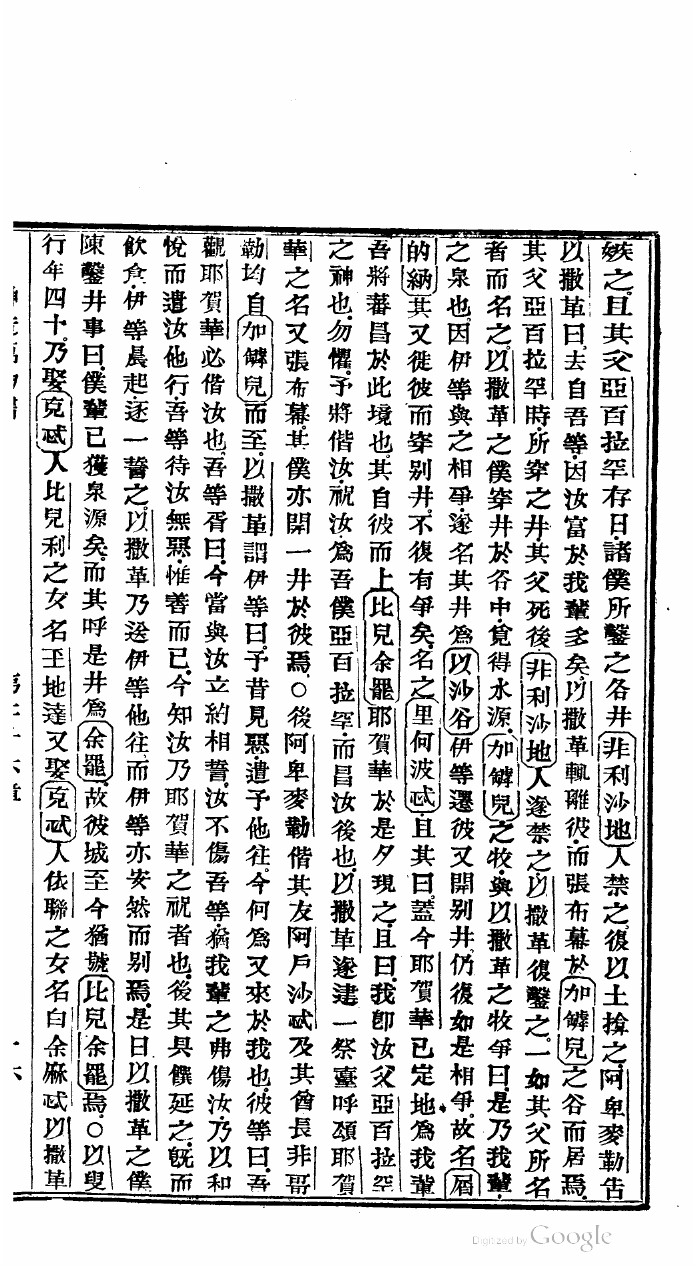 嫉之且其父亞百拉罕存日諸僕所鑿之各井非利沙地人禁之復以土揜之阿卑麥勒告
以撒革曰去自吾等因汝富於我輩多矣以撒革輒離彼而張布幕於加罅兒之谷而居焉
其父亞百拉罕時所穿之井其父死後非利沙地人遂禁之以撒革復鑿之一如其父所名
者而名之以撒革之僕穿井於谷中覓得水源加罅兒之牧與以撒革之牧爭曰是乃我輩
之泉也因伊等與之相爭遂名其井為以沙谷伊等遷彼又開别井仍復如是相爭故名屑
的納其又徙彼而穿别井不復有爭矣名之里何波忒且其曰蓋今耶賀華已定地為我輩
吾將蕃昌於此境也其自彼而上比兒余罷耶賀華於是夕現之且曰我卽汝父亞百拉罕
之神也勿懼予將偕汝祝汝為吾僕亞百拉罕而昌汝後也以撒革遂建一祭臺呼頌耶賀
華之名又張布幕其僕亦開一井於彼焉○後阿卑麥勒偕其友阿戶沙忒及其酋長非哥
勒均自加罅兒而至以撒革謂伊等曰予昔見惡遣予他往今何為又來於我也彼等曰吾
觀耶賀華必偕汝也吾等胥曰今當與汝立約相誓汝不傷吾等猶我輩之弗傷汝乃以和
悅而遣汝他行吾等待汝無惡惟善而已今知汝乃耶賀華之祝者也後其具饌延之旣而
飲食伊等晨起逐一誓之以撒革乃送伊等他往而伊等亦安然而别焉是日以撒革之僕
陳鑿井事曰僕輩已獲泉源矣而其呼是井為余罷故彼城至今猶號比兒余罷焉○以叟
行年四十乃娶克忒人比兒利之女名王地達又娶克忒人依聯之女名白余麻忒以撒革
十六
Digitized by Google